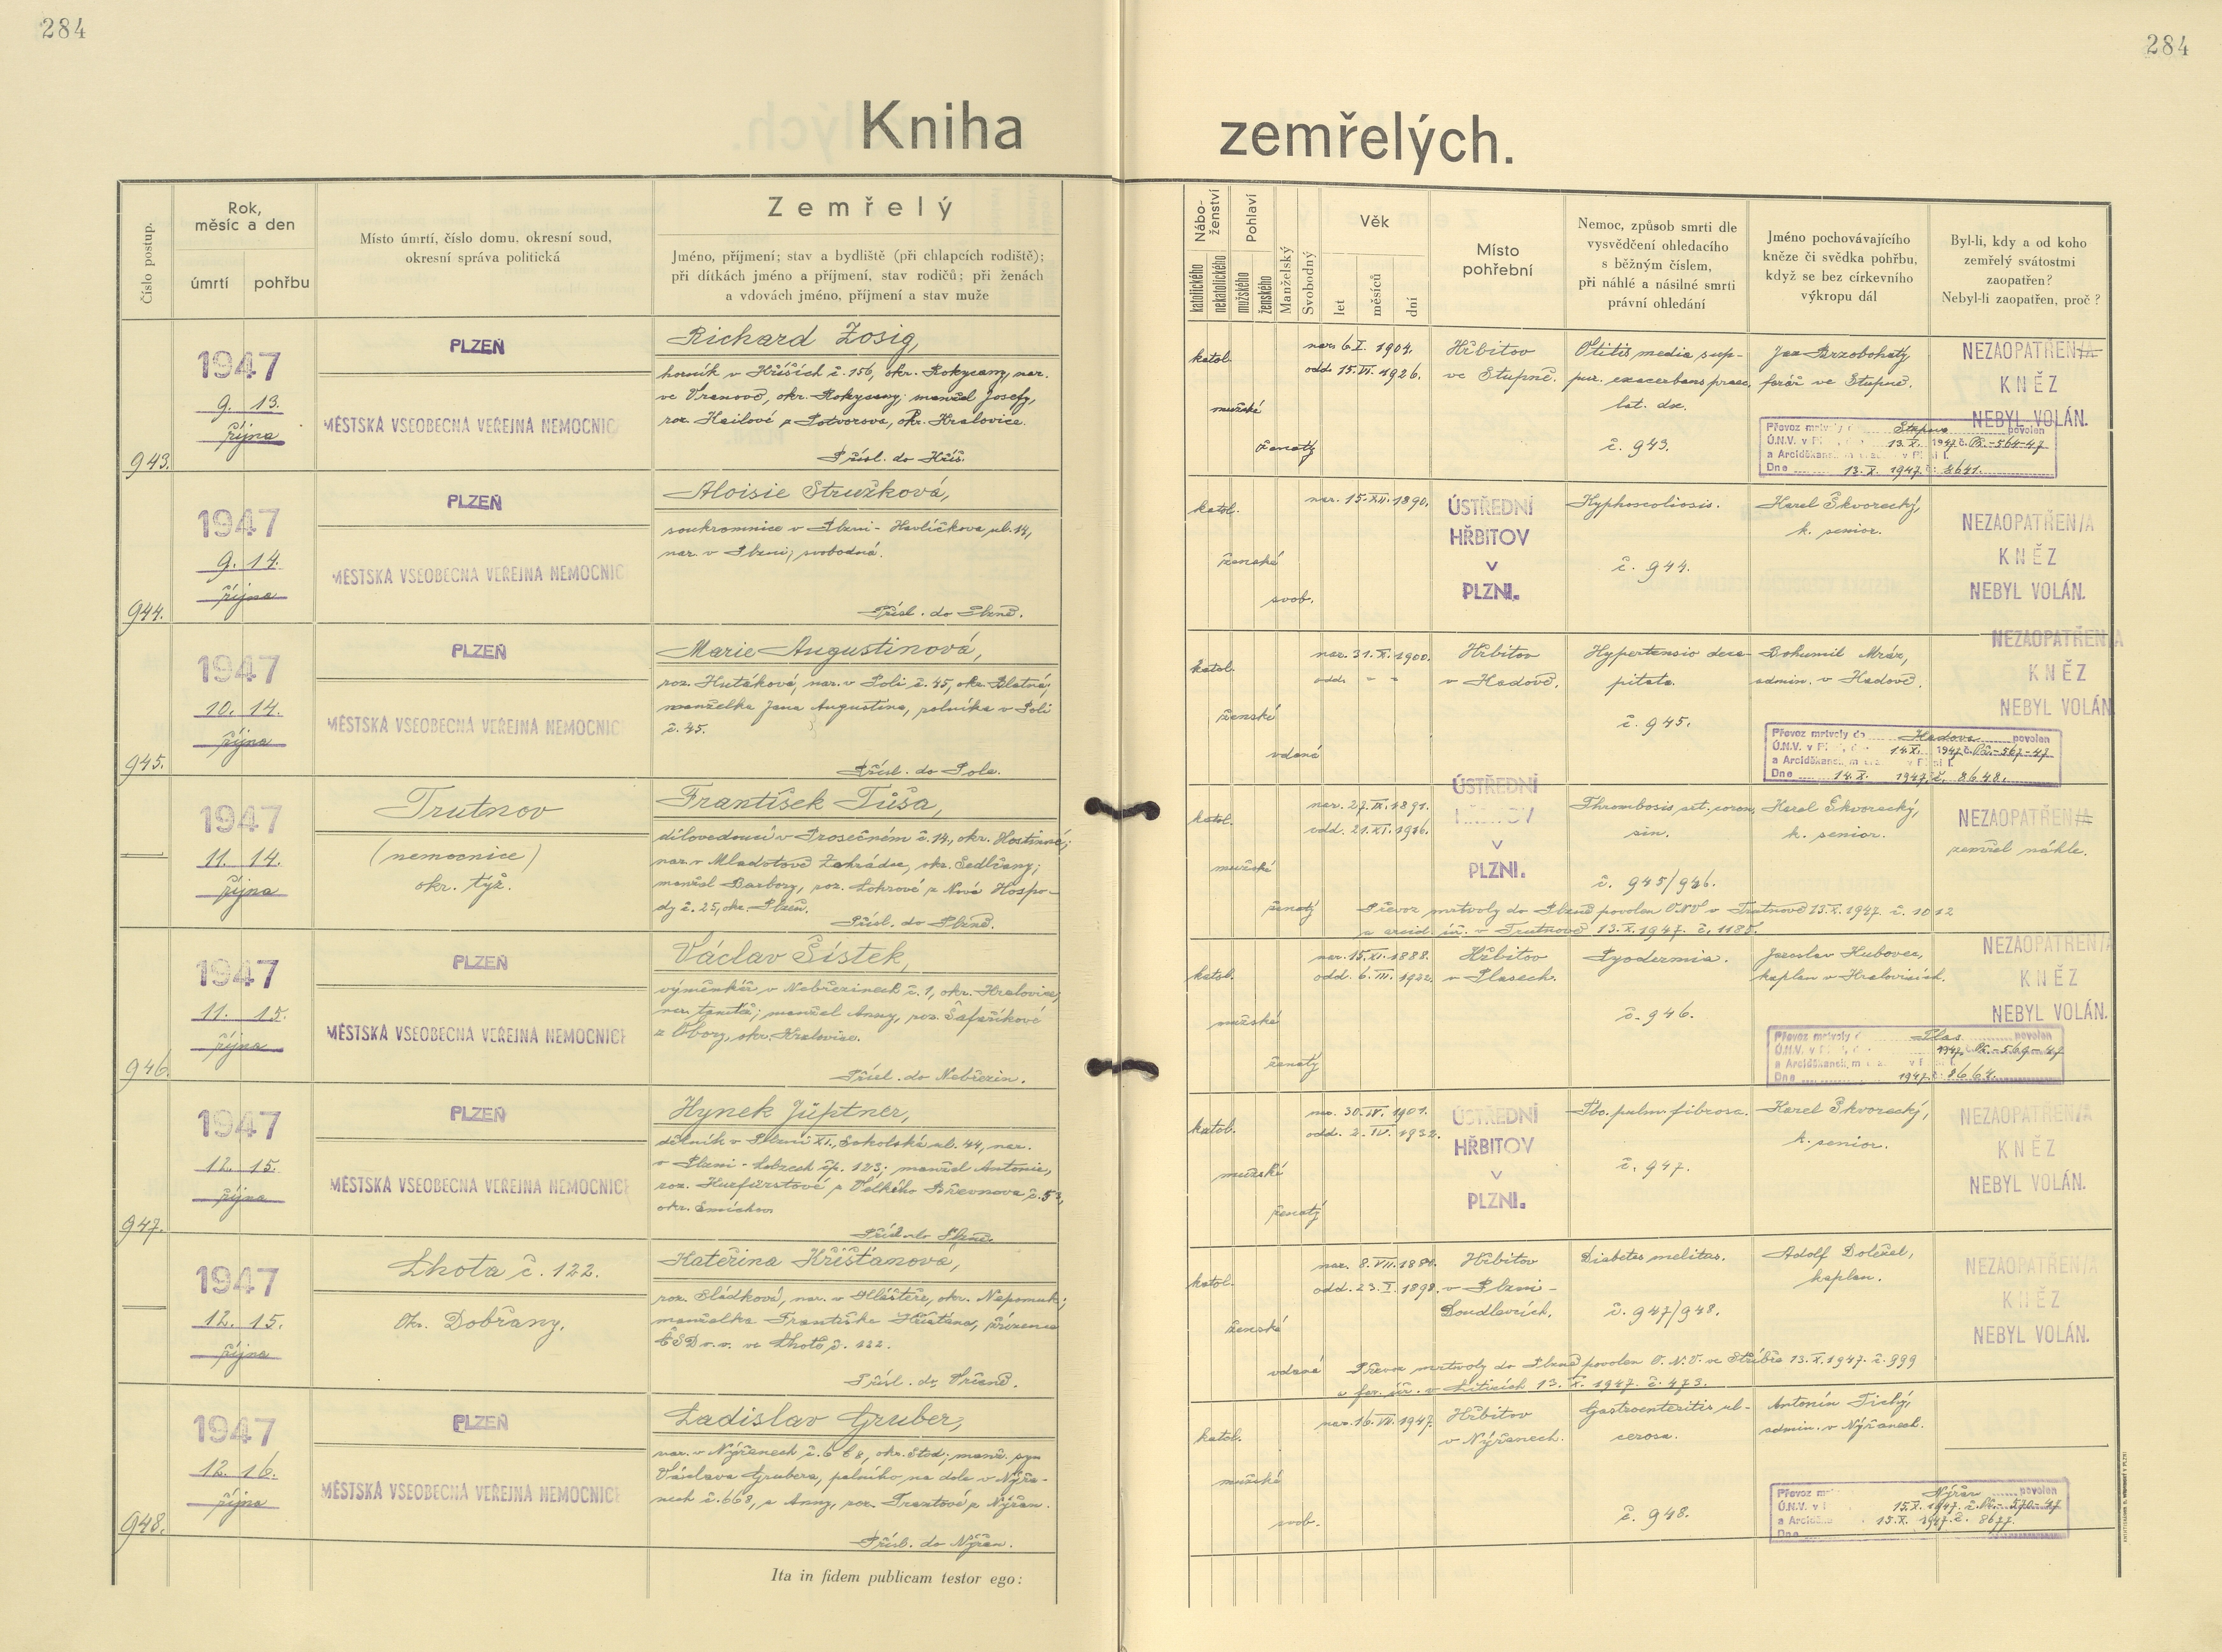 284
284
Kniha zemřelých.
Číslo postup.
Rok,
měsíc a den
úmrtí
pohřbu
Místo úmrtí, číslo domu, okresní soud,
okresní správa politická
Zemřelý
Jméno, příjmení; stav a bydliště (při chlapcích rodiště);
při dítkách jméno a příjmení, stav rodičů; při ženách
a vdovách jméno, příjmení a stav muže
Nábo-
ženství
katolického
nekatolického
Pohlaví
mužského
ženského
Manželský
Svobodný
Věk
let
měsíců
dní
Místo
pohřební
Nemoc, způsob smrti dle
vysvědčení ohledacího
s běžným číslem,
při náhlé a násilné smrti
právní ohledání
Jméno pochovávajícího
kněze či svědka pohřbu,
když se bez církevního
výkropu dál
Byl-li, kdy a od koho
zemřelý svátostmi
zaopatřen?
Nebyl-li zaopatřen, proč?
943.
1947
9. 13.
října
PLZEŇ
MĚSTSKÁ VŠEOBECNÁ VEŘEJNÁ NEMOCNIC
Richard Zosig,
horník v Hříších č. 156, okr. Rokycany, nar.
ve Vranově, okr. Rokycany; manžel Josefy,
roz. Hailové z Potvorova, okr. Kralovice.
Přísl. do Kříš.
katol.
mužské
ženatý
nar. 6. I. 1904.
odd. 15. VI. 1926.
Hřbitov
ve Stupně.
Otitis media sup-
pur. exacerbans praec.
lat. dx.
č. 943.
Jan Brzobohatý,
farář ve Stupně.
NEZAOPATŘEN/A
KNĚZ
NEBYL VOLÁN.
Převoz mrtvoly Stupna povolen
Ú.N.V. v 13. X. 1947 č. Př.-564-47
a Arciděkan.
Dne 13. X. 1947 č. 8641.
944.
1947
9. 14.
října
PLZEŇ
MĚSTSKÁ VŠEOBECNÁ VEŘEJNÁ NEMOCNIC
Aloisie Stružková,
soukromnice v Plzni - Havlíčkova ul. 14,
nar. v Plzni; svobodná.
Přísl. do Plzně.
katol.
ženské
svob.
nar. 15. XII. 1890.
ÚSTŘEDNÍ
HŘBITOV
V
PLZNI.
Kyphoscoliosis.
č. 944.
Karel Škvorecký,
k. senior.
NEZAOPATŘEN/A
KNĚZ
NEBYL VOLÁN.
945.
1947
10. 14.
října
PLZEŇ
MĚSTSKÁ VŠEOBECNÁ VEŘEJNÁ NEMOCNIC
Marie Augustinová,
roz. Hutáková, nar. v Poli č. 45, okr. Blatná;
manželka Jana Augustina, rolníka v Poli
č. 45.
Přísl. do Pole.
katol.
ženské
vdaná
nar. 31. X. 1900.
odd. - -
Hřbitov
v Kadově.
Hypertensio deca-
pitata.
č. 945.
Bohumil Mráz,
admin. v Kadově.
NEZAOPATŘEN/A
KNĚZ
NEBYL VOLÁN
Převoz mrtvoly do Kadova povolen
Ú.N.V. v 14. X. 1947 č. Př.-567-47
a Arciděkan.
Dne 14. X. 1947 č. 8648.
1947
11. 14.
října
Trutnov
(nemocnice)
okr. týž.
František Tůša,
dílovedoucí v Prosečném č. 14, okr. Hostinné;
nar. v Mladotově Zahrádce, okr. Sedlčany;
manžel Barbory, roz. Lohrové z Nové Hospo-
dy č. 25, okr. Plzeň.
Přísl. do Plzně.
katol.
mužské
ženatý
nar. 27. IX. 1891.
odd. 21. XI. 1916.
ÚSTŘEDNÍ
HŘBITOV
V
PLZNI.
Thrombosis art. coron.
sin.
č. 945/946.
Karel Škvorecký,
k. senior.
NEZAOPATŘEN/A
zemřel náhle.
Převoz mrtvoly do Plzně povolen ONV v Trutnově 13. X. 1947. č. 1012
a arcid. úř. v Trutnově 13. X. 1947. č. 1185.
946.
1947
11. 15.
října
PLZEŇ
MĚSTSKÁ VŠEOBECNÁ VEŘEJNÁ NEMOCNICE
Václav Šístek,
výměnkář v Nebřezinech č. 1, okr. Kralovice,
nar. tamtéž; manžel Anny, roz. Šafaříkové
z Obory, okr. Kralovice.
Přísl. do Nebřezin.
katol.
mužské
ženatý
nar. 15. XI. 1888.
odd. 6. III. 1922.
Hřbitov
v Plasech.
Pyodermia.
č. 946.
Jaroslav Hubovec,
kaplan v Kralovicích.
NEZAOPATŘEN/A
KNĚZ
NEBYL VOLÁN.
Převoz mrtvoly Plas povolen
Ú.N.V. v 1947 č. Př.-569-47
a Arciděkan.
Dne 1947 č. 8664.
947.
1947
12. 15.
října
PLZEŇ
MĚSTSKÁ VŠEOBECNÁ VEŘEJNÁ NEMOCNICE
Hynek Jüptner,
dělník v Plzni XI., Sokolská ul. 44, nar.
v Plzni - Lobzech čp. 123; manžel Antonie,
roz. Kurfürstové z Velkého Břevnova č. 53,
okr. Smíchov
Přísl. do Plzně.
katol.
mužské
ženatý
nar. 30. IV. 1901.
odd. 2. IV. 1932.
ÚSTŘEDNÍ
HŘBITOV
V
PLZNI.
Tbc. pulm. fibrosa.
č. 947.
Karel Škvorecký,
k. senior.
NEZAOPATŘEN/A
KNĚZ
NEBYL VOLÁN.
1947
12. 15.
října
Lhota č. 122.
Okr. Dobřany.
Kateřina Křišťanová,
roz. Sládková, nar. v Klášteře, okr. Nepomuk;
manželka Františka Křišťana, zřízence
ČSD v. v. ve Lhotě č. 122.
Přísl. do Vrčeně.
katol.
ženské
vdaná
nar. 8. VII. 1884.
odd. 23. I. 1898.
Hřbitov
v Plzni -
Doudlevcích.
Diabetes melitus.
č. 947/948.
Adolf Doležel,
kaplan.
NEZAOPATŘEN/A
KNĚZ
NEBYL VOLÁN.
Převoz mrtvoly do Plzně povolen O.N.V. ve Stříbře 13. X. 1947. č. 999
a far. úř. v Liticích 13. X. 1947. č. 473.
948.
1947
12. 16.
října
PLZEŇ
MĚSTSKÁ VŠEOBECNÁ VEŘEJNÁ NEMOCNICE
Ladislav Gruber,
nar. v Nýřanech č. 668, okr. Stod; manž. syn
Václava Grubera, palného na dole v Nýřa-
nech č. 668, a Anny, roz. Trantové z Nýřan.
Přísl. do Nýřan.
katol.
mužské
svob.
nar. 16. VII. 1947.
Hřbitov
v Nýřanech.
Gastroenteritis ul-
cerosa.
č. 948.
Antonín Tichý,
admin. v Nýřanech.
Převoz Nýřan povolen
Ú.N.V. v 15. X. 1947. č. Př.-570-47
a Arciděk. 15. X. 1947. č. 8677.
Dne
Ita in fidem publicam testor ego: